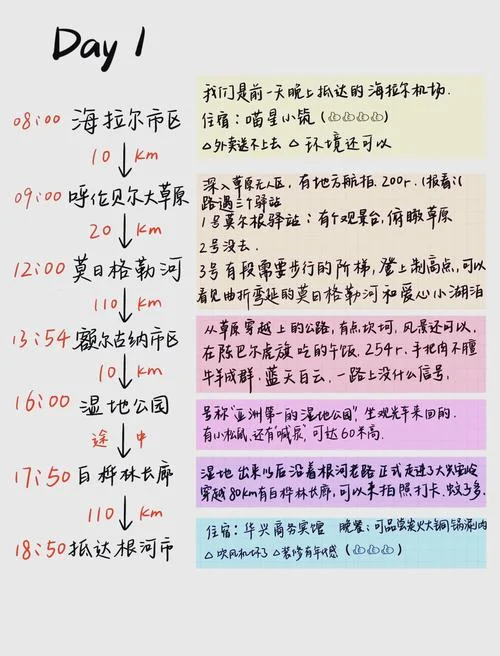 Day 1
08:00 海拉尔市区
10 km
09:00 呼伦贝尔大草原
20 km
12:00 莫日格勒河
110 km
13:54 额尔古纳市区
10 km
16:00 湿地公园
途中
17:50 白桦林长廊
110 km
18:50 抵达根河市
我们是前一天晚上抵达的海拉尔机场.
住宿：喵星小筑 (
△外卖送不上去 △ 环境还可以
深入草原无人区，有地方航拍. 200r.
路遇三个驿站
1号莫尔根驿站：有个观景台，俯瞰草原
2号没去.
3号有段需要步行的阶梯，登上制高点，可以
看见曲折蜿蜒的莫日格勒河和爱心小湖泊
从草原穿越上的公路，有点坎坷，风景还可以，
在陈巴尔虎旗吃的午饭，254r. 手把肉不膻
牛羊成群. 蓝天白云. 一路上没什么信号，
号称"亚洲第一的湿地公园"，坐观光车来回的.
有小松鼠，还有"喊泉"，可达60米高.
湿地出来以后沿着根河老路正式走进了大兴安岭
穿越80km有白桦林长廊，可以来拍照打卡. 蚊子多.
住宿：华兴商务宾馆 晚餐：可品尝炭火铜锅涮肉
△吹风机坏了 △装修有年代感 (